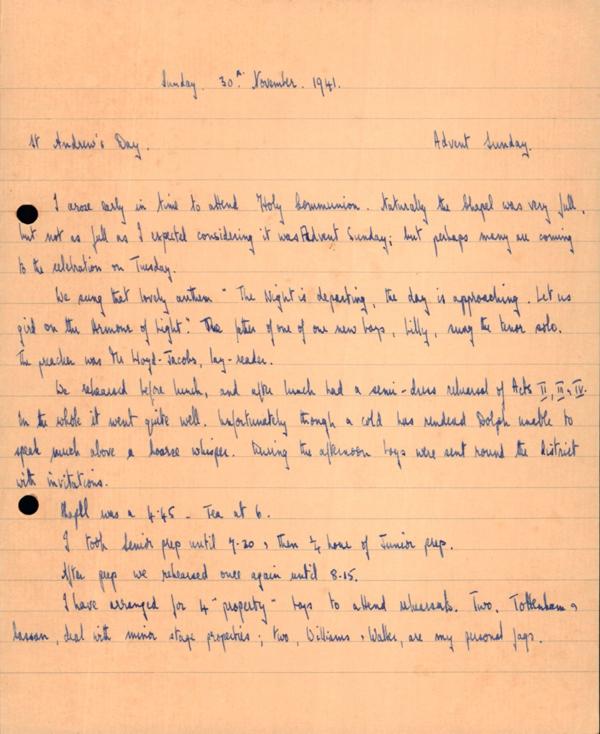 Sunday. 30th November. 1941.
St Andrew's Day. Advent Sunday.
I arose early in time to attend Holy Communion. Naturally the Chapel was very full,
but not as full as I expected considering it was Advent Sunday; but perhaps many are coming
to the celebration on Tuesday.
We sung that lovely anthem "The Night is departing, the day is approaching. Let us
gird on the Armour of Light." The father of one of our new boys, Lilly, sung the tenor solo.
The preacher was Mr Lloyd-Jacobs, lay-reader.
We rehearsed before lunch, and after lunch had a semi-dress rehearsal of Acts II, III, IV.
On the whole it went quite well. Unfortunately though a cold has rendered Dolph unable to
speak much above a hoarse whisper. During the afternoon boys were sent round the District
with invitations.
was a 4.45 - Tea at 6.
I took Senior prep until 7.20, then 3/4 hour of Junior prep.
After prep we rehearsed once again until 8.15.
I have arranged for 4 "property" boys to attend rehearsals. Two, Tottenham &
deal with minor stage properties; two, Williams & Walker, are my personal fags.